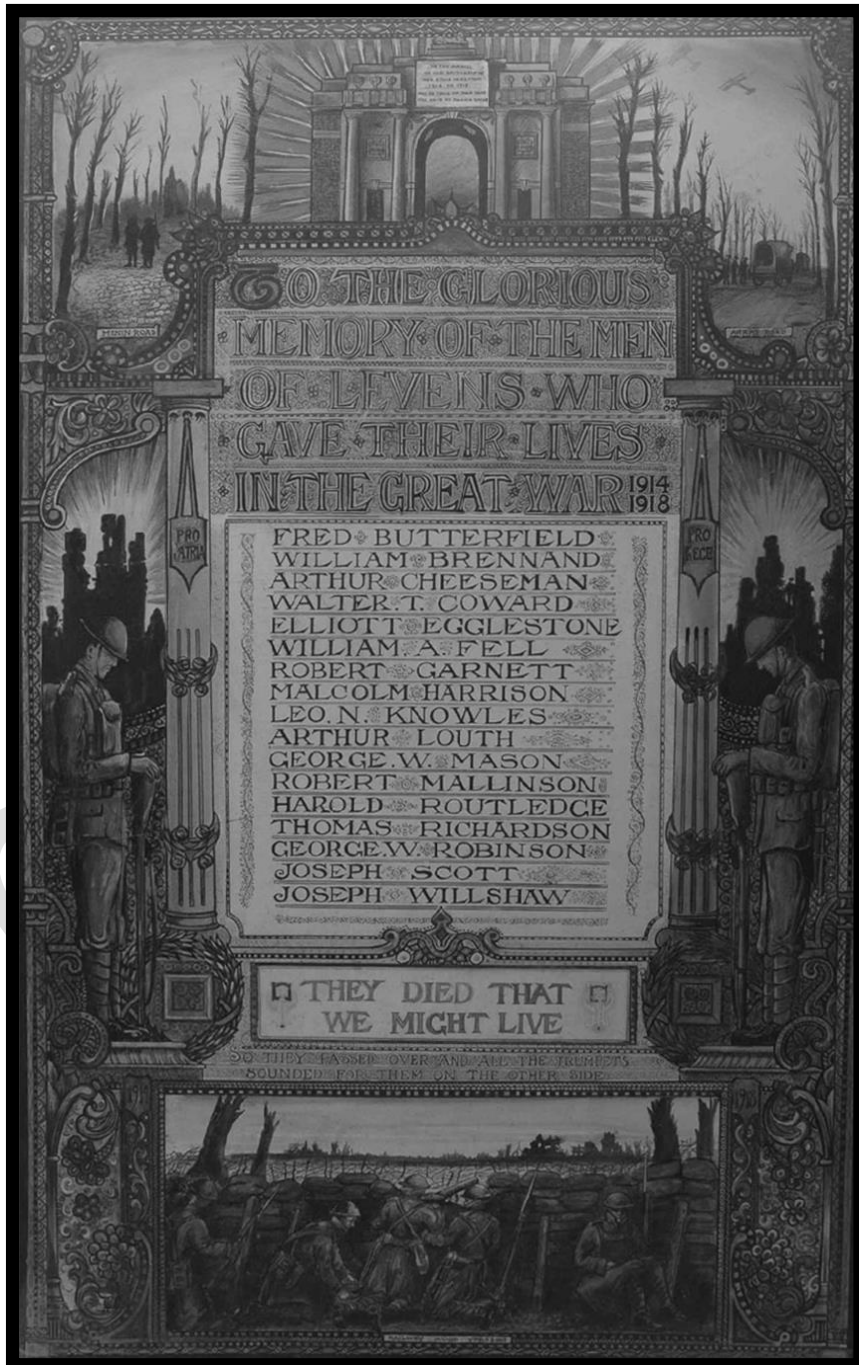 MENIN ROAD
TO THE GLORIOUS
MEMORY OF THE MEN
OF LEVENS WHO
GAVE THEIR LIVES
IN THE GREAT WAR 1914
1918
PRO
PATRIA
PRO
REGE
FRED BUTTERFIELD
WILLIAM BRENNAND
ARTHUR CHEESEMAN
WALTER.T. COWARD
ELLIOTT EGGLESTONE
WILLIAM.A.FELL
ROBERT GARNETT
MALCOLM HARRISON
LEO.N. KNOWLES
ARTHUR LOUTH
GEORGE.W. MASON
ROBERT MALLINSON
HAROLD ROUTLEDGE
THOMAS RICHARDSON
GEORGE.W. ROBINSON
JOSEPH SCOTT
JOSEPH WILLSHAW
THEY DIED THAT
WE MIGHT LIVE
SO THEY PASSED OVER AND ALL THE TRUMPETS
SOUNDED FOR THEM ON THE OTHER SIDE